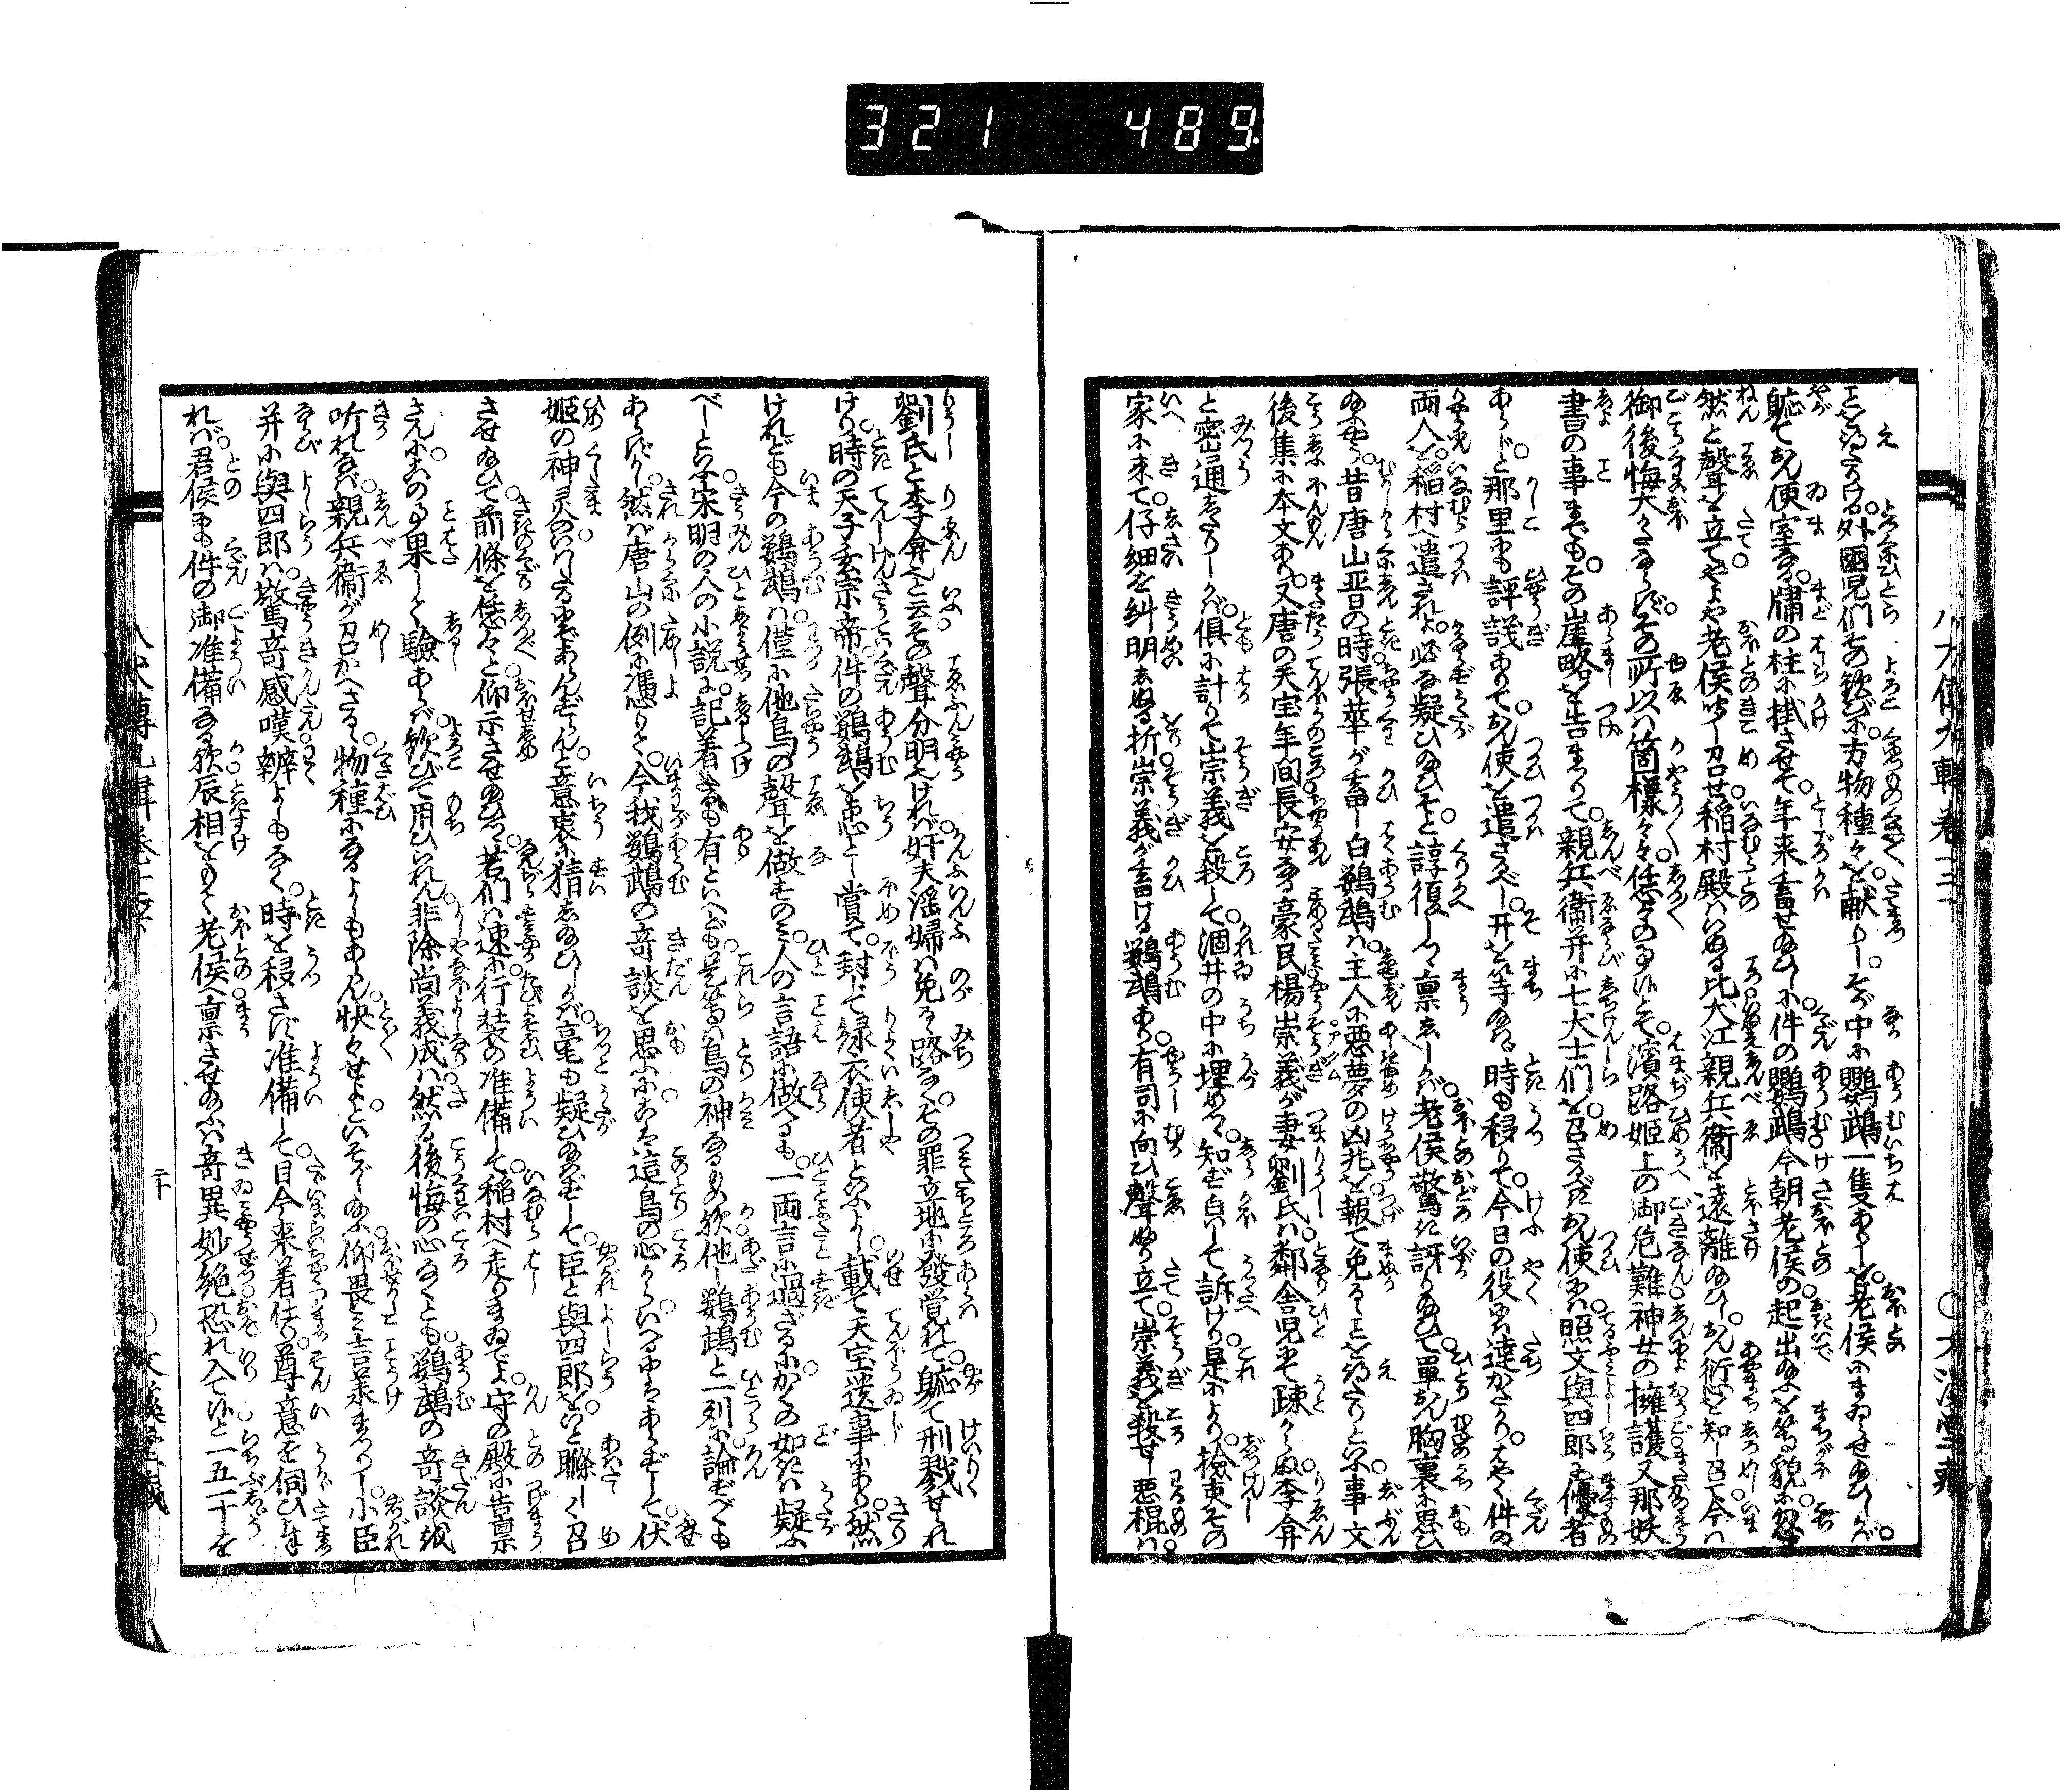 321 489
八犬伝九輯巻十三
ことを得たりける。外國児們その歓びに。方物種々を献りし。そが中に鸚鵡一隻ありしを。老侯にまゐらせ給ひしが。
軈てお便室なる。牗の柱に掛させて。年来畜せ給ひしに。件の鸚鵡今朝老侯の。起出給ふを等る貌に。忽
然と聲を立て。やよや老侯。とく召せ。稲村殿はいぬる比。大江親兵衛を遠離給ひしおん愆を知し召て。今は
御後悔大かたならず。その所以は箇様々々。恁々の事にこそ。濱路姫上の御危難。神女の擁護。又那妖
書の事までも。その崖略を告まつりて。親兵衛并に七犬士們を。召さるべきおん使には。照文與四郎に優者
あらじ。と那里にも評議ありて。おん使を遣さるべし。开を等給はゞ。時も移りて。今日の役には達がたかり。はやく件の
両人を。稲村へ遣されよ。必な疑ひ給ひそ。と諄復しつゝ禀ししかば。老侯驚き訝り給ひて。單おん胸裏に思ひ
給ふやう。昔唐山晋の時。張華が畜し白鸚鵡は。主人に悪夢の凶兆を報て。免るゝことを得たりといふ事。文
後集に本文あり。又唐の天宝年間。長安なる豪民。楊崇義が妻劉氏は。鄰舎児にて疎からぬ。李弇
と密通したりしかば。倶に計りて崇義を殺して。涸井の中に埋めつゝ。知ず白して訴けり。是により。撿吏その
家に来て。仔細を糾明しぬる折。崇義が畜ける鸚鵡あり。有司に向ひ聲ふり立て。崇義を殺せし悪棍は。
劉氏と李弇と云。その聲分明えければ。奸夫淫婦は免るゝ路なく。その罪立地に發覚れて。軈て刑戮せられ
けり。時の天子玄宗帝。件の鸚鵡を忠とし賞て。封じて緑衣使者といふよし。載て天宝遺事にあり。然
けれども今の鸚鵡は。僅に他鳥の聲を做すのみ。人の言語に做へるも。一両言に過ざるに。かくの如きは疑ふ
べしといふ。宋明の人の小説に。記着たるも有といへども。是等は鳥の神なるもの歟。他し鸚鵡と一列に論ずべくも
あらずかし。然ば唐山の例に憑りて。今我鸚鵡の奇談を思ふに。こは這鳥の心から。いへるにはあらずして。伏
姫の神灵の。いはしたるにぞあらんずらんと。意衷に猜し給ひしかば。毫も疑ひ給はずして。臣と與四郎を。いと𦩘しく召
させ給ひて。前條を恁々と。仰示させ給ひつゝ。若們は速に。行装の准備して。稲村へ走りまゐでよ。守の殿に告禀
さんに。その事果して驗あらば。歓びて用ひられん。非除尚義成は。然る後悔の心なくとも。鸚鵡の奇談を
听れなば。親兵衛が召かへさるゝ。物種になるよしもあらん。快々せよ。といそがし給ふ。仰畏く言承まつりて。小臣
并に與四郎は。驚竒感嘆辨よしもなく。時を移さず准備して。目今来着仕りぬ。尊意を伺ひまつ
れば。君侯にも件の御准備なる歟。辰相をもて老侯へ。禀させ給ふは奇異妙絶。恐れ入て候と。一五一十を
二十